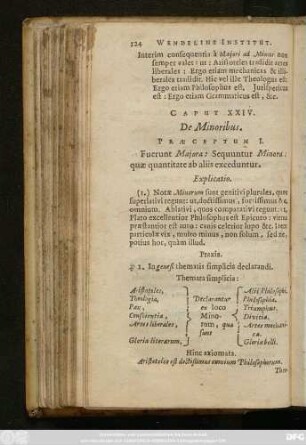 124 WENDELINI INSTITUT.
Interim consequentia à Majori ad Minus non
semper valet: ut: Aristoteles tradidit artes
liberales: Ergo etiam mechanicas & illi-
berales tradidit. Hic vel ille Theologus est:
Ergo etiam Philosophus est, Jurisperitus
est: Ergo etiam Grammaticus est, &c.
CAPUT XXIV.
De Minoribus.
PRÆCEPTUM I.
Fuerunt Majora: Sequuntur Minora:
quæ quantitate ab aliis exceduntur.
Explicatio.
(1.) Notæ Minorum sunt genitivi plurales, quos
superlativi regunt: ut, doctissimus, fortissimus &c.
omnium. Ablativi, quos comparativi regunt: ut,
Plato excellentior Philosophus est Epicuro: virtus
præstantior est auro: canis celerior lupo &c. Item
particulæ vix, multo minus, non solum, sed &c.
potius hoc, quàm illud.
Praxis.
§ 1. In genesi thematis simplicis declarandi.
Themata simplicia:
Aristoteles,
Theologia,
Pax,
Conscientia,
Artes liberales,
Gloria literarum,
Declarantur
ex loco
Mino-
rum, qua
sunt
Alii Philosophi.
Philosophia.
Triumphus.
Divitiæ.
Artes mechani-
cæ.
Gloria belli.
Hinc axiomata.
Aristoteles est doctissimus omnium Philosophorum.
Theo-